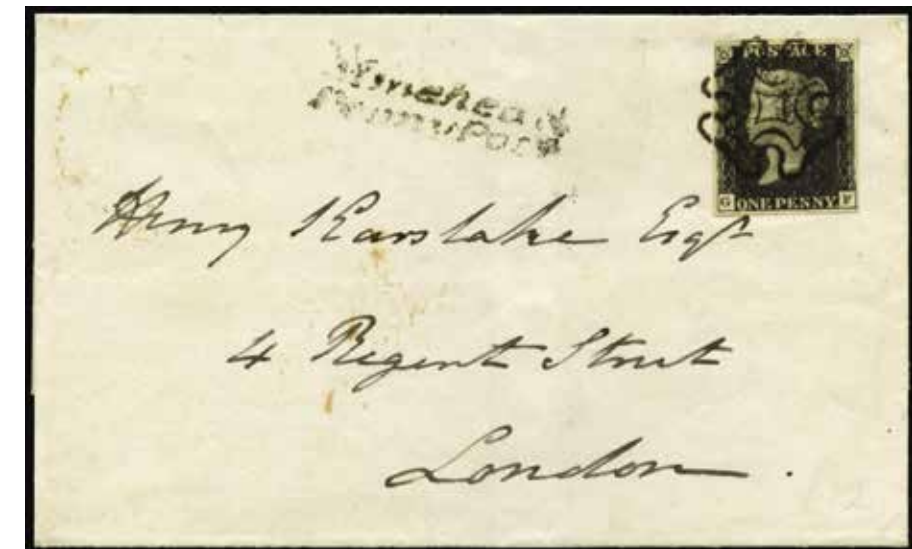 Minehead
PennyPost
POSTAGE
G ONE PENNY F
Henry Karslake Esqr
4 Regent Street
London.